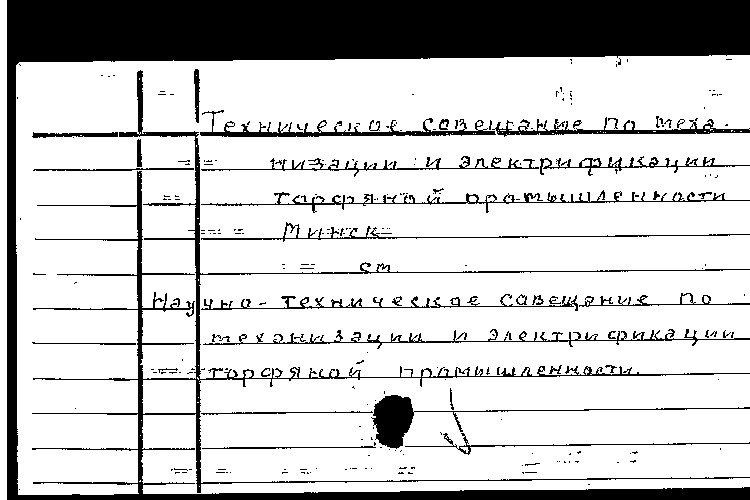 Техническое совещание по меха-
низации и электрификации
торфяной промышленности
Минск
см.
Научно-техническое совещание по
механизации и электрификации
торфяной промышленности.